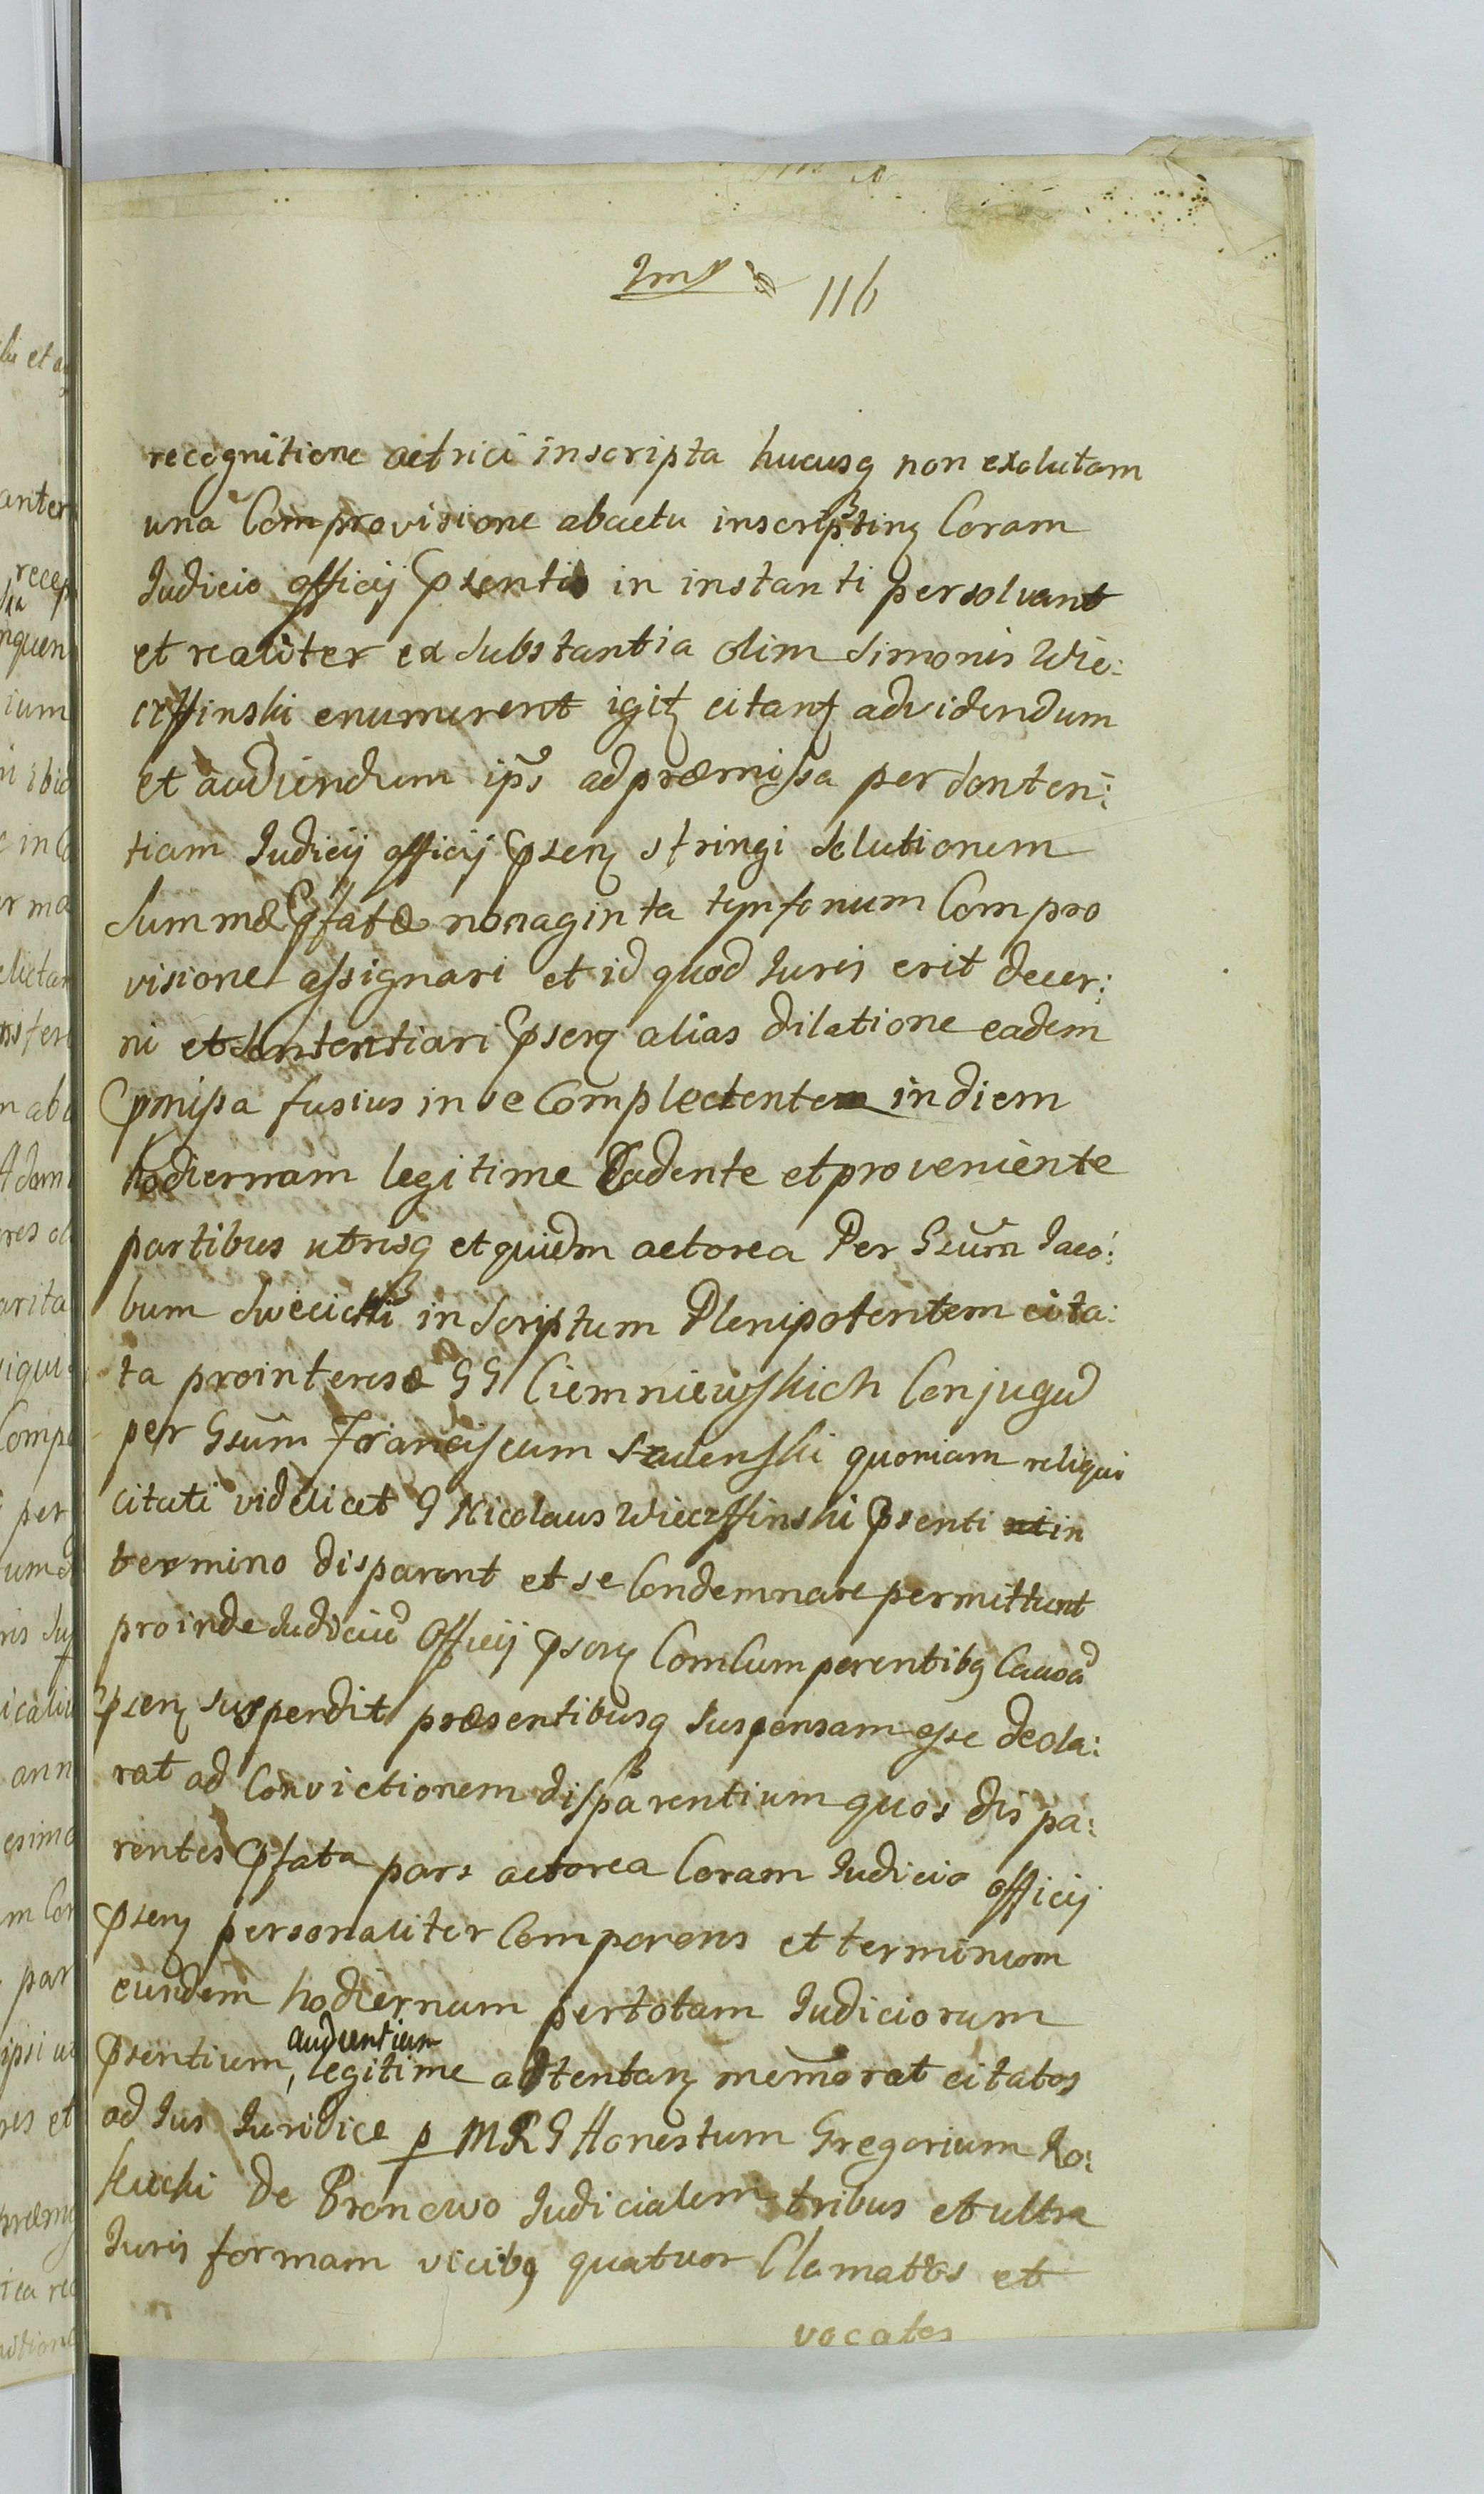 116
recognitione actrici inscripta hucusq non exolutam
una Com provisione abactu inscriptinȝ Coram
Judicio officij Psentis in instanti persolvant
et realiter ex Substantia olim Simonis Wie:
czffinski enumerent igitȝ citantȝ ad videndum
et audiendum ips ad præmissa per Senten:
tiam Judicij officij Psenȝ stringi Solutionem
Summæ Pfatæ nonaginta tynfonum Com pro
visione assignari et id quod Juris erit decer:
ni et Sententiari Psenȝ alias dilatione eadem
Pmissa fusius in se Complectente in diem
hodiernam legitime Cadente et proveniente
partibus utrisq et quidm actorea Per Gsum Jaco:
bum Swiecicki in Scriptum Plenipotentem cita:
ta prointeresse GG Ciemniewskich Conjugu
per Gsum Franciscum quoniam reliqui
citati videlicet G Nicolaus Wieczffinski Psenti in
termino disparent et se Condemnare permittunt
proinde Judiciu Officij Psenȝ Com Cumparentibq Causa
Psenȝ suspendit præsentibusq Suspensam esse decla:
rat ad Convictionem disparentium quos dis pa:
rentes Pfata pars actorea Coram Judicio officij
Psenȝ personaliter Comparens et terminum
eundem hodiernum per totam Judiciorum
Psentium, audientiam legitime attentanȝ memorat citatos
ad Jus Juridice p MRG Honestum Gregorium Ro:
kicki de Pronewo Judicialem tribus et ultra
Juris formam vicibq quatuor Clamatos et
vocatos